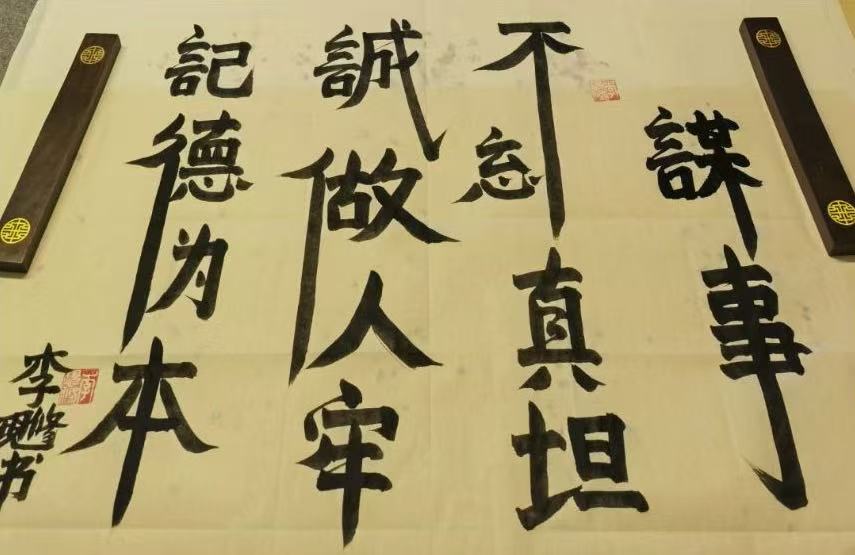 謀事
不忘真坦
誠做人牢
記德为本
李修
书